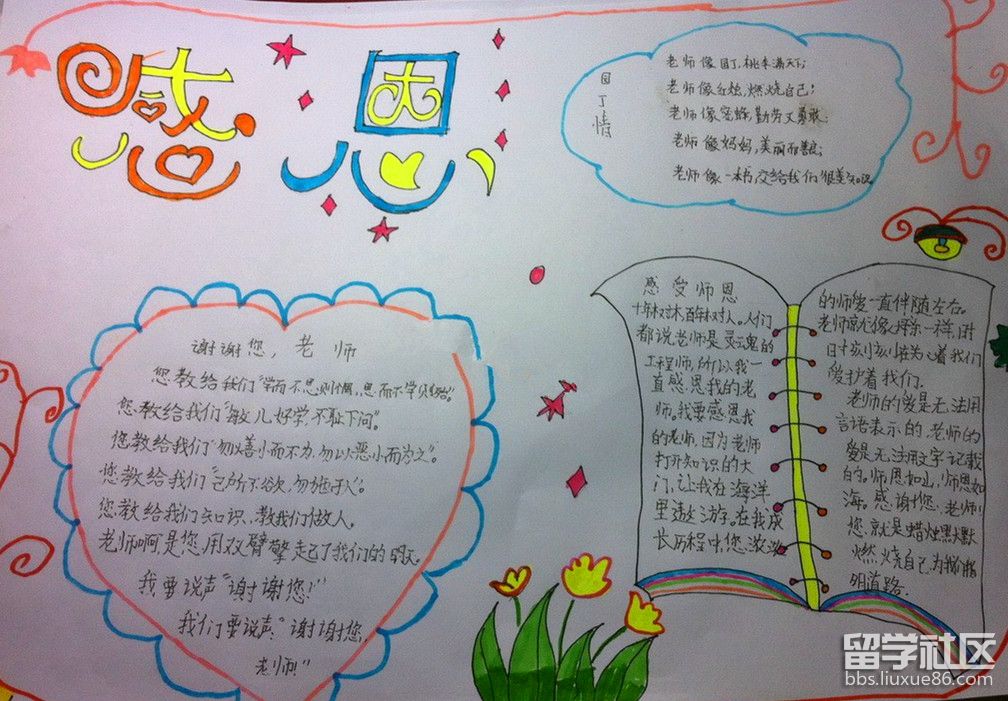 感恩
园丁情
老师像园丁,桃李满天下;
老师像红烛,燃烧自己;
老师像蜜蜂,勤劳又勇敢;
老师像妈妈,美丽而善良;
老师像一本书,交给我们很美知识。
谢谢您,老师
您教给我们“学而不思则惘,思而不学则殆”。
您教给我们“敏儿好学,不耻下问”。
您教给我们“勿以善小而不为,勿以恶小而为之”。
您教给我们“己所不欲,勿施于人”。
您教给我们知识,教我们做人。
老师啊是您,用双臂擎起了我们的明天
我要说声“谢谢您!”
我们要说声:“谢谢您,
老师!”
感受师恩
十年树木,百年树人。人们
都说老师是灵魂的
工程师,所以我一
直感恩我的老
师。我要感恩我
的老师,因为老师
打开知识的大
门,让我在海洋
里遨游。在我成
长历程中,您浓浓
的师爱一直伴随左右。
老师就像择东一样,时
时刻刻在关心着我们
爱护着我们。
老师的爱是无法用
言语表示的,老师的
爱是无法用文字记载
的。师恩如山,师恩如
海。感谢您,老师!
您就是蜡烛默默
燃烧自己为我们指
明道路.
留学社区
bbs.liuxue86.com